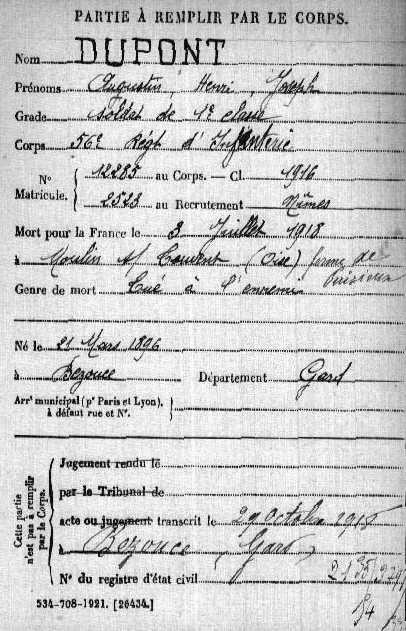 PARTIE À REMPLIR PAR LE CORPS.
Nom DUPONT
Prénoms Augustin, Henri, Joseph
Grade soldat de 1e classe
Corps 56e Régt d'Infanterie
N° Matricule. { 12285 au Corps. — Cl. 1916
2523 au Recrutement Nîmes
Mort pour la France le 3 Juillet 1918
à Moulin s/ Touvent (Oise) ferme de
Genre de mort Tué à l'ennemi
Né le 21 Mars 1896
à Bezouce Département Gard
Arrt municipal (pr Paris et Lyon), à défaut rue et N°. }
Cette partie n'est pas à remplir par le Corps.
Jugement rendu le
par le Tribunal de
acte ou jugement transcrit le 29 Octobre 1918
à Bezouce (Gard)
N° du registre d'état civil
534-708-1921. [26434.]